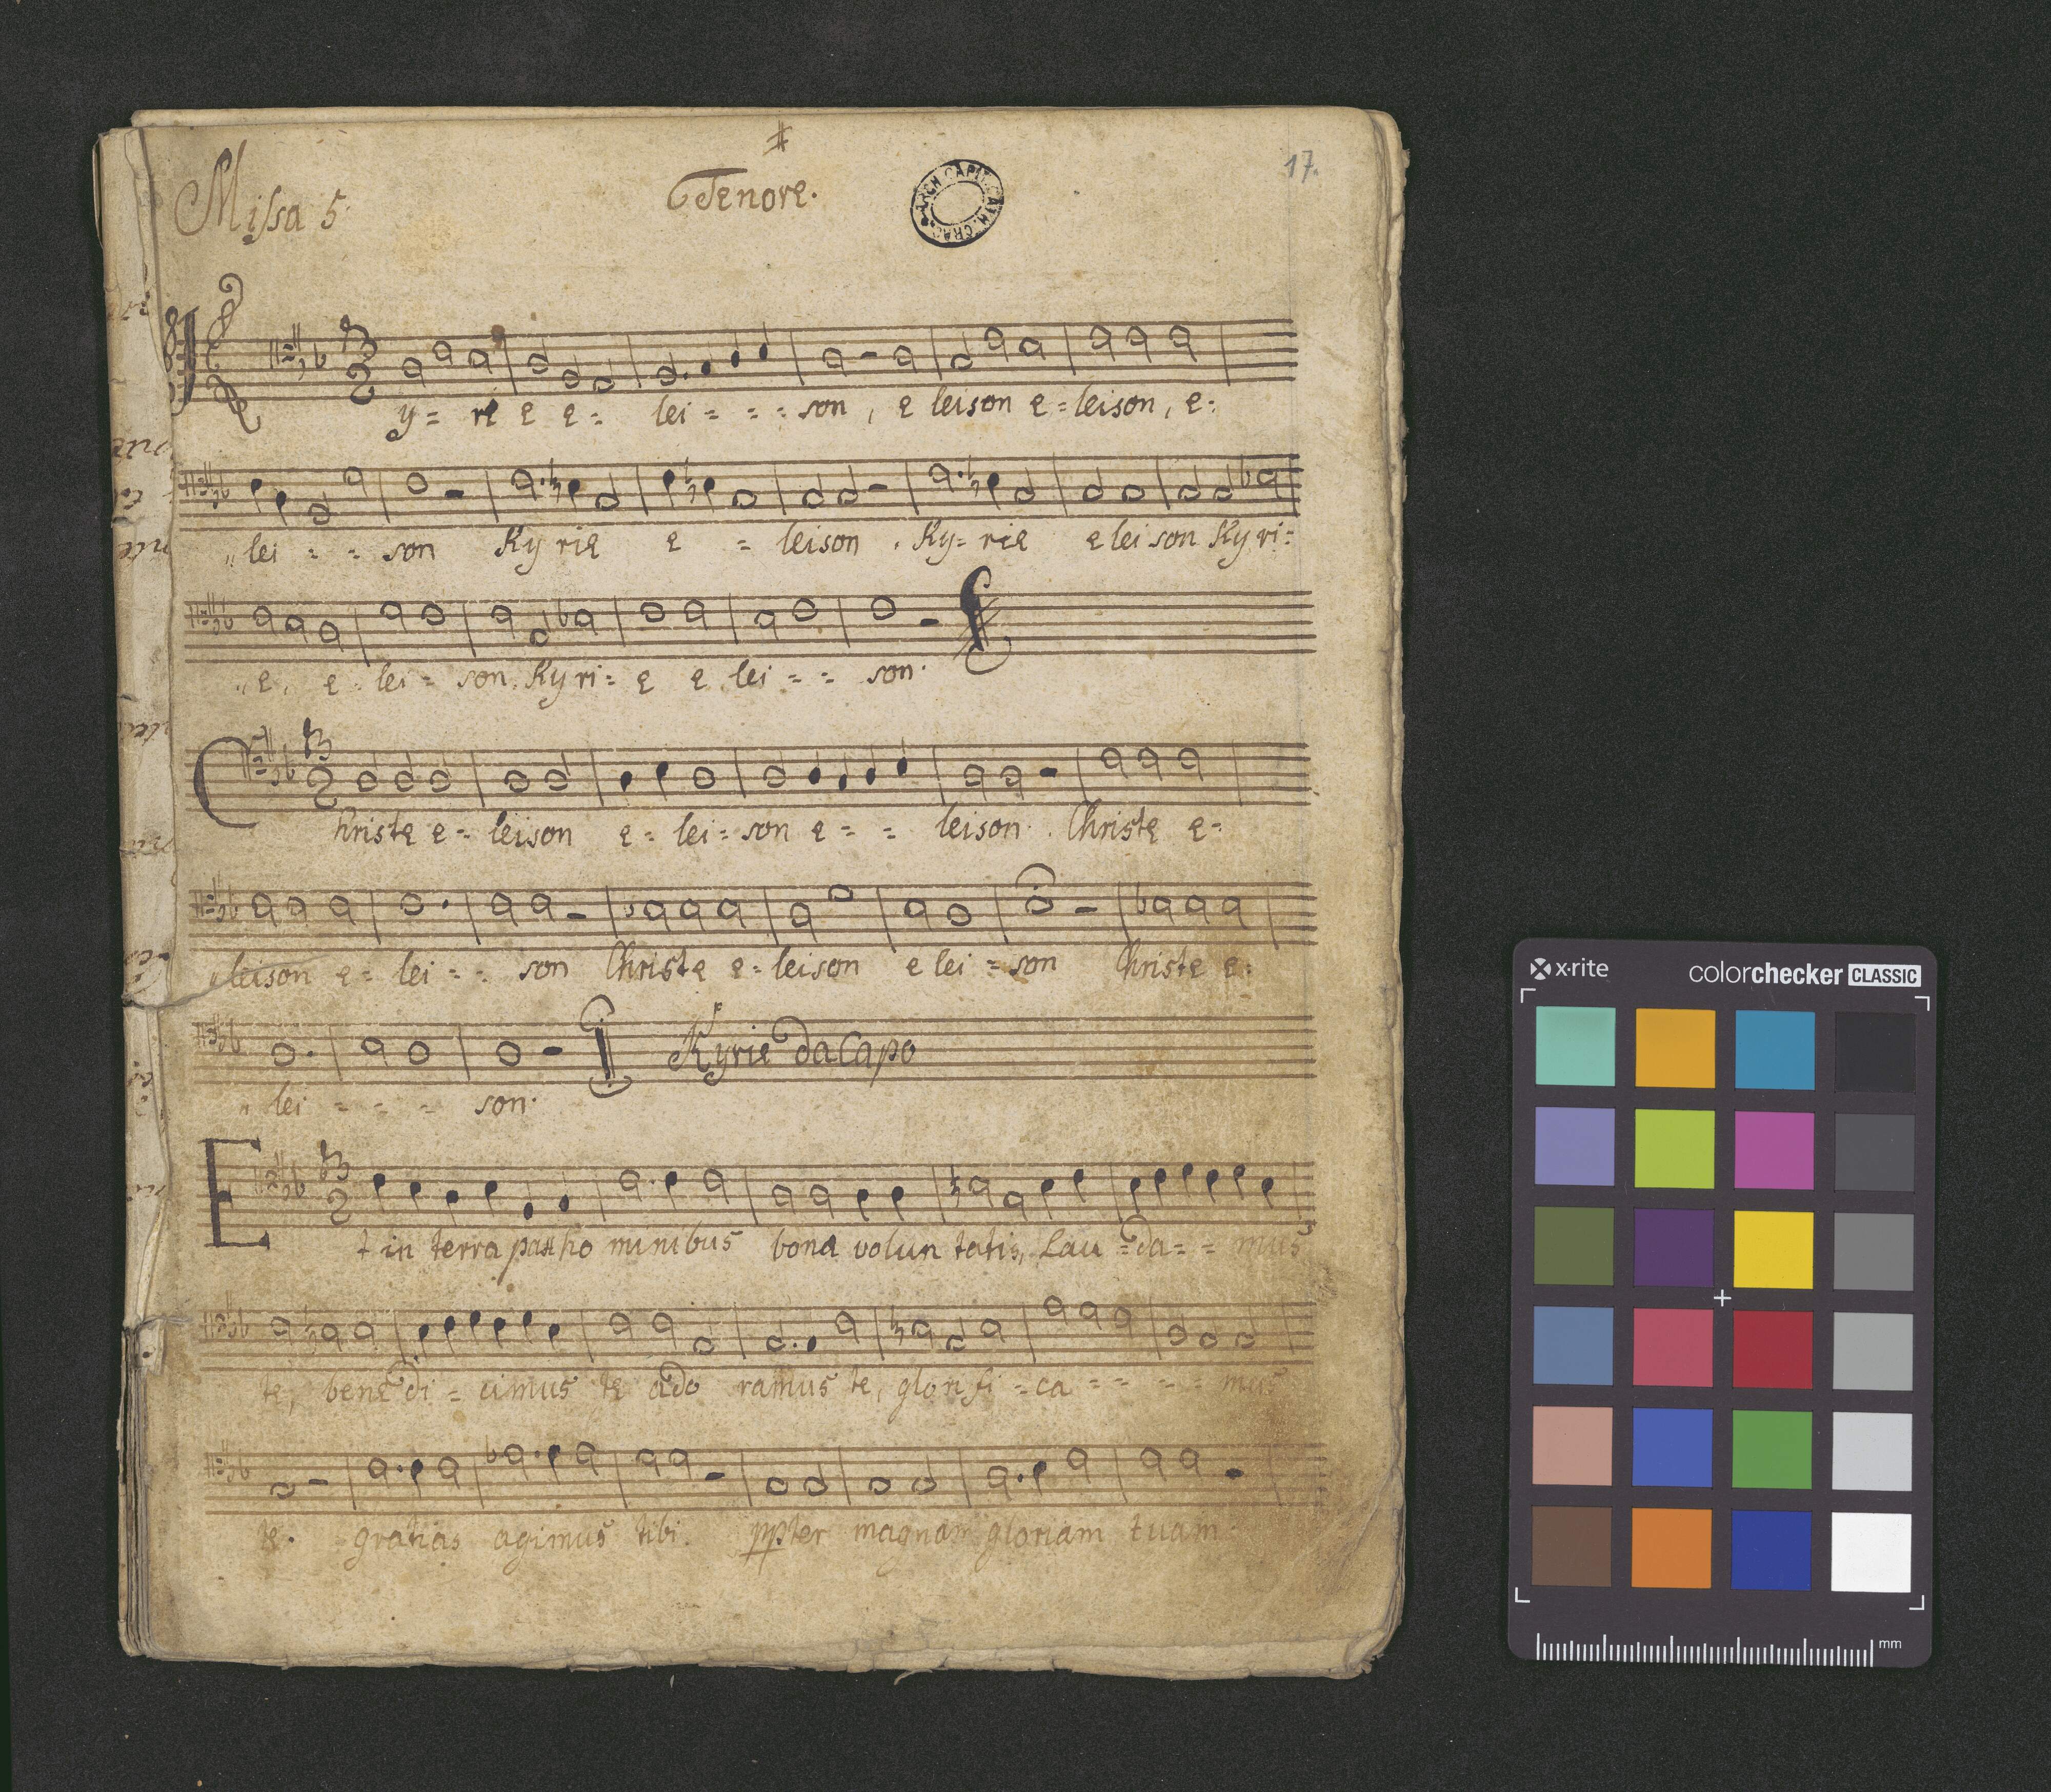 Missa 5
Tenore.
17.
ARCH. CAPIT. CATH. CRAC.
Ky= rie e e= lei = = = son, e leison e=leison, e=
lei = = son Kyrie e = leison. Ky=rie eleison Kyri=
e, e=lei= son. Kyri=e e lei = = son.
Christe e= leison e=lei=son e= = leison. Christe e=
leison e=lei= = son Christe e=leison e lei=son Christe e=
lei = = = son.
Kyrie da Capo
Et in terra pax ho minibus bona volun tatis, Lau=da= = mus
te, bene di = cimus te ado ramus te, glorifi=ca = = = = mus
te. gratias agimus tibi. ppter magnam gloriam tuam
x·rite
colorchecker CLASSIC
mm